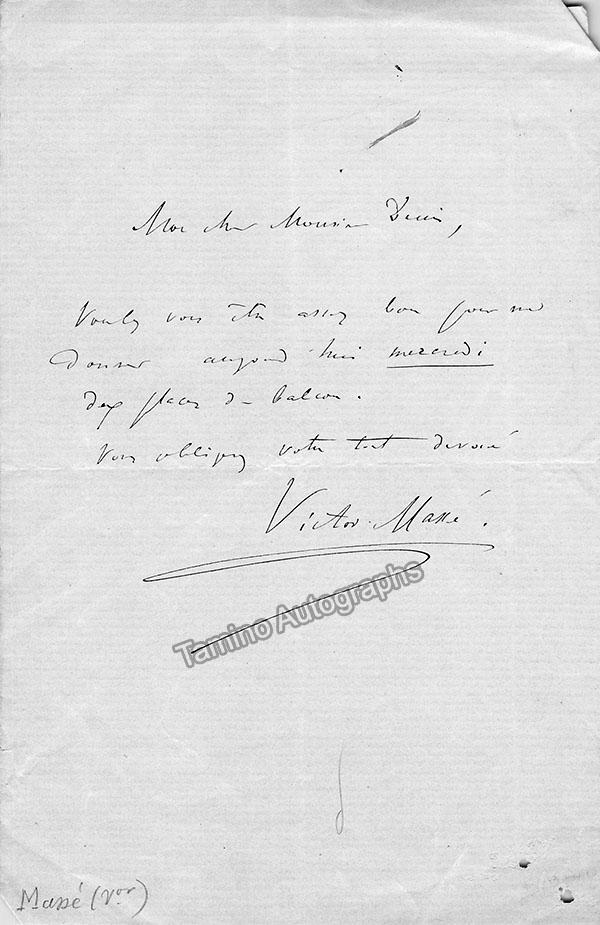 Mon cher Monsieur
Voulez vous être assez bon pour me
donner aujourd'hui mercredi
deux places de balcon.
Vous obligerez votre tout dévoué
Victor Massé.
Tamino Autographs
Massé (Vor)